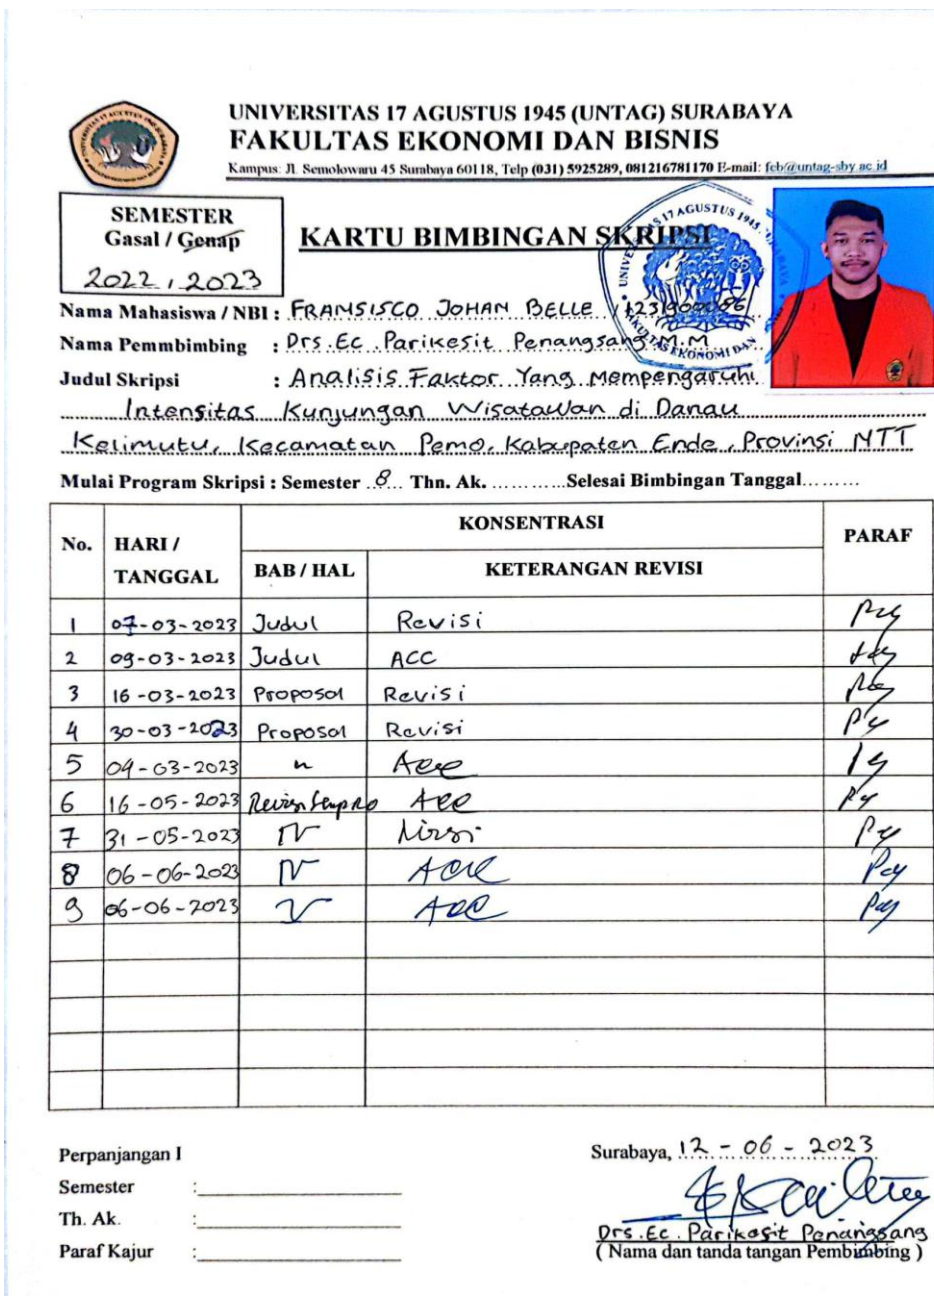 UNIVERSITAS 17 AGUSTUS 1945 (UNTAG) SURABAYA
FAKULTAS EKONOMI DAN BISNIS
Kampus: Jl. Semolowaru 45 Surabaya 60118, Telp (031) 5925289, 081216781170 E-mail: feb@untag-sby.ac.id
SEMESTER
Gasal / Genap
2022 / 2023
KARTU BIMBINGAN SKRIPSI
Nama Mahasiswa / NBI : FRANSISCO JOHAN BELLE / 1231900056
Nama Pemmbimbing : Drs.Ec. Parikesit Penangsang M.M
Judul Skripsi : Analisis Faktor Yang Mempengaruhi
Intensitas Kunjungan Wisatawan di Danau
Kelimutu, Kecamatan Pemo, Kabupaten Ende, Provinsi NTT
Mulai Program Skripsi : Semester 8 Thn. Ak. ............Selesai Bimbingan Tanggal.........
No. HARI / TANGGAL KONSENTRASI PARAF
BAB / HAL KETERANGAN REVISI
1 07-03-2023 Judul Revisi
2 09-03-2023 Judul ACC
3 16-03-2023 Proposal Revisi
4 30-03-2023 Proposal Revisi
5 04-03-2023 " Acc
6 16-05-2023 Revisi Sempro Acc
7 31-05-2023 IV
8 06-06-2023 IV ACC
9 06-06-2023 V ACC
Perpanjangan I
Semester :
Th. Ak. :
Paraf Kajur :
Surabaya, 12 - 06 - 2023
Drs.Ec. Parikesit Penangsang
( Nama dan tanda tangan Pembimbing )